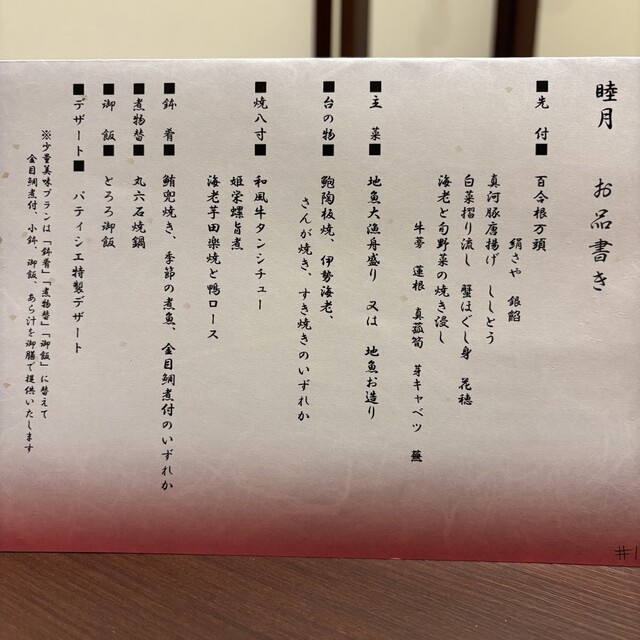 睦月　お品書き
■先付■　百合根万頭
絹さや　銀餡
真河豚唐揚げ　ししとう
白菜摺り流し　蟹ほぐし身　花穂
海老と旬野菜の焼き浸し
牛蒡　蓮根　真菰筍　芽キャベツ　蕪
■主菜■　地魚大漁舟盛り　又は　地魚お造り
■台の物■　鮑陶板焼、伊勢海老、
さんが焼き、すき焼きのいずれか
■焼八寸■　和風牛タンシチュー
姫栄螺旨煮
海老芋田楽焼と鴨ロース
■鉢肴■　鮪兜焼き、季節の煮魚、金目鯛煮付のいずれか
■煮物替■　丸六石焼鍋
■御飯■　とろろ御飯
■デザート■　パティシエ特製デザート
※少量美味プランは「鉢肴」「煮物替」「御飯」に替えて
金目鯛煮付、小鉢、御飯、あら汁を御膳で提供いたします
#1